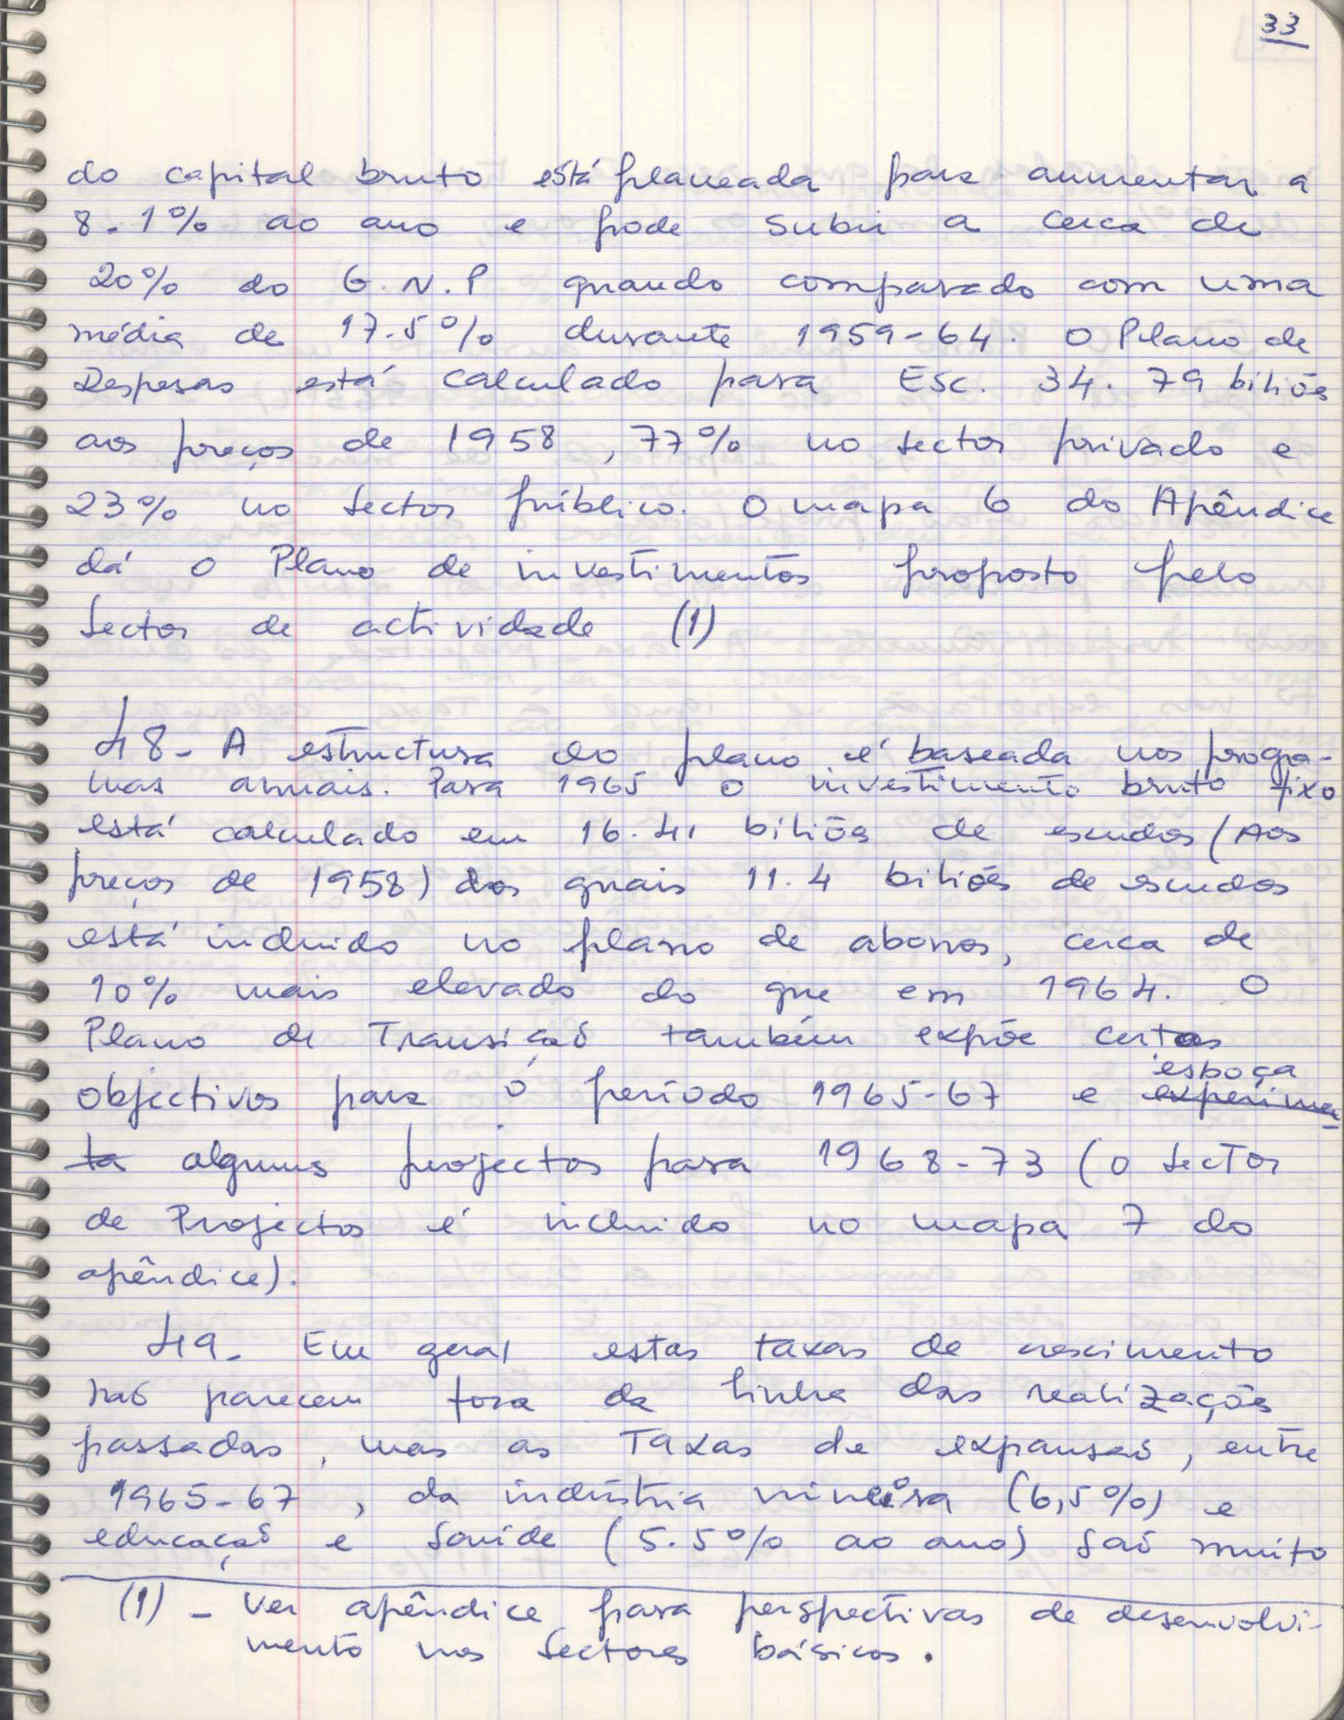 33
do capital bruto está planeada para aumentar a
8.1% ao ano e pode subir a cerca de
20% do G.N.P quando comparado com uma
média de 17.5% durante 1959-64. O Plano de
Despesas está calculado para Esc. 34.79 biliões
aos preços de 1958, 77% no sector privado e
23% no sector público. O mapa 6 do Apêndice
dá o Plano de investimentos proposto pelo
Sector de actividade (1)
48- A estructura do plano é baseada nos progra-
mas anuais. Para 1965 o investimento bruto fixo
está calculado em 16.41 biliões de escudos (Aos
preços de 1958) dos quais 11.4 biliões de escudos
está incluido no plano de abonos, cerca de
10% mais elevado do que em 1964. O
Plano de Transição também expõe certos
esboça
objectivos para o período 1965-67 e experimen-
ta alguns projectos para 1968-73 (o sector
de Projectos é incluido no mapa 7 do
apêndice).
49- Em geral estas taxas de crescimento
não parecem fora da linha das realizações
passadas, mas as Taxas de expansão, entre
1965-67, da indústria mineira (6,5%) e
educação e Saúde (5.5% ao ano) são muito
(1) - Ver apêndice para perspectivas de desenvolvi-
mento nos Sectores básicos.